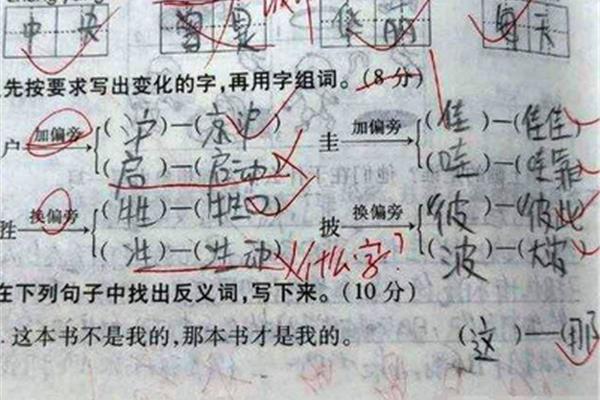 中 央 华 丽
先按要求写出变化的字,再用字组词。(8分)
户 加偏旁 (沪)—(京沪) 圭 加偏旁 (佳)—(佳佳)
(启)—(启动) (哇)—(哇靠)
胜 换偏旁 (牲)—(牲口) 披 换偏旁 (彼)—(彼此)
( )—(生动) 什么字? (波)—(
在下列句子中找出反义词,写下来。(10分)
.这本书不是我的,那本书才是我的。 (这)—(那